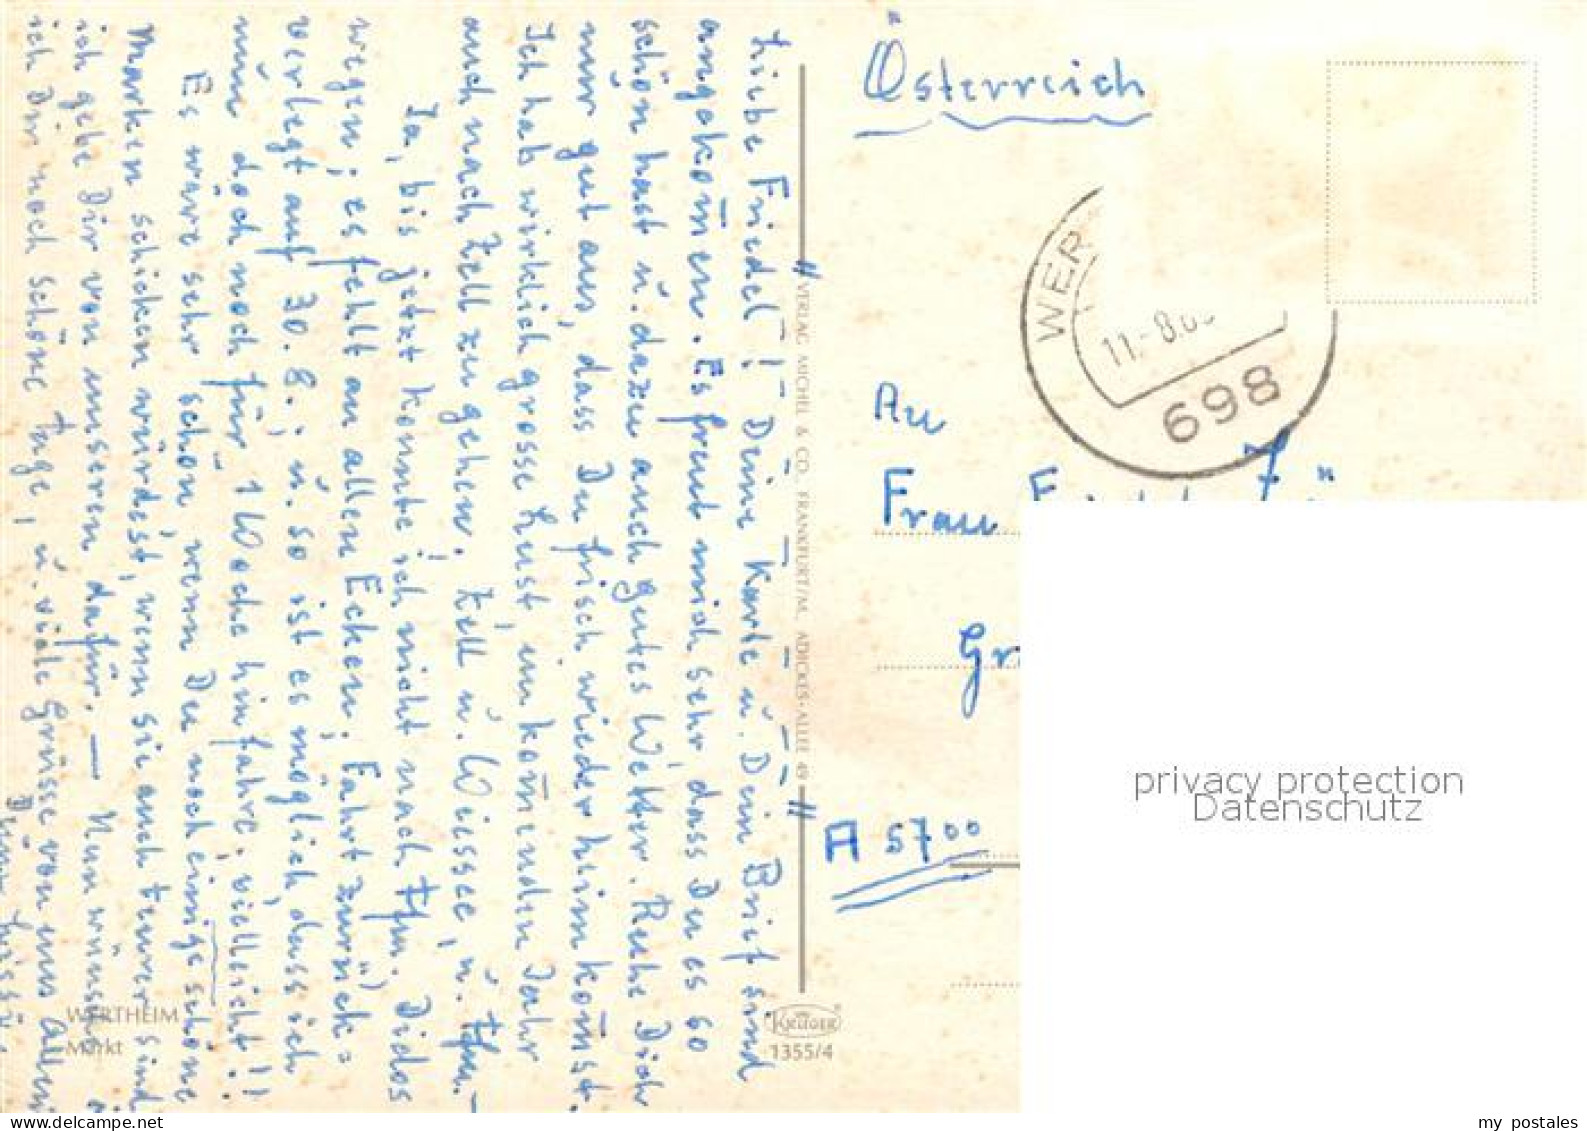 Liebe Friedel! Deine Karte u. Dein Brief sind
angekom̄en. Es freut mich sehr, dass Du es so
schön hast u. dazu auch gutes Wetter. Ruhe Dich
nur gut aus, dass Du frisch wieder heim kom̄st.
Ich hab wirklich grosse Lust, im kom̄enden Jahr
auch nach Zell zu gehen. Zell u. Weissee, u.
Ja, bis jetzt konnte ich nicht nach Didos
wegen; es fehlt an allen Ecken. Fahrt zurück=
verlegt auf 30.8.; u. so ist es möglich, dass ich
nun doch noch für 1 Woche hinfahre. vielleicht!!
Es wäre sehr schön, wenn Du noch einige schöne
Marken schicken würdest, wenn sie auch teurer sind
ich gebe Dir von unseren dafür. — Nun wünsche
ich Dir noch schöne Tage, u. viele Grüsse von uns allen
Deine
WERTHEIM
Markt
VERLAG MICHEL & CO. FRANKFURT/M. ADICKES-ALLEE 49
KRÜGER
1355/4
Österreich
WER
11.-8.6
698
An
Frau
Gr
A 5700
privacy protection
Datenschutz
www.delcampe.net
my_postales